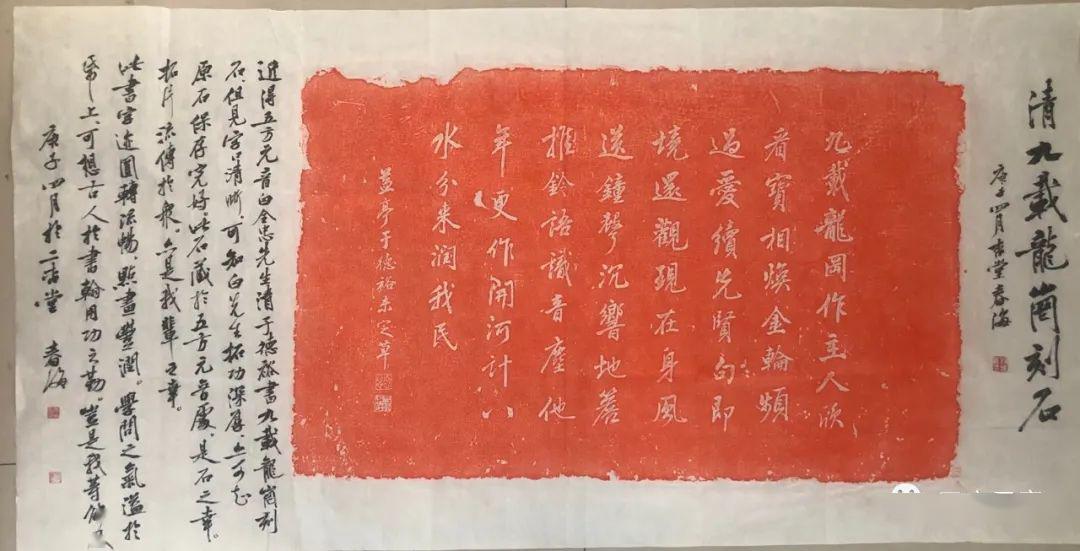 清九載龍崗刻石
庚子四月古堂春海
九載龍岡作主人欣
看寶相煥金輪頻
過愛續先賢句即
境還觀現在身風
送鐘聲沉響地簷
摧鈴語識音塵他
年更作開河計八
水分来润我民
益亭于德裕未定草
近得五方元音白全忠先生清于德裕書九載龍崗刻
石但見字口清晰可知白先生拓功深厚亦可知
原石保存完好此石藏於五方元音處是石之幸
拓片流傳於衆亦是我輩之幸
此書字迹圓轉流暢點畫豐潤學問之氣溢於
紙上可想古人於書翰用功之勤豈是我等
庚子四月於二杏堂 春海